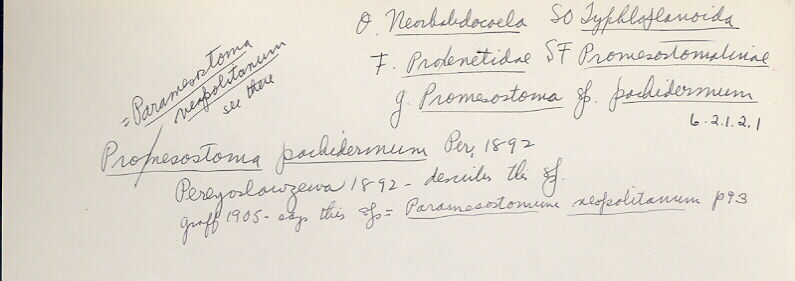 O. Neorhabdocoela SO Typhloplanoida
F. Proxenetidae SF Promesostominae
g. Promesostoma sp. pachidermum
6.2.1.2.1
= Paramesostoma
neapolitanum
see there
Promesostoma pachidermum Per, 1892
Pereyoslawzewa 1892 - describes this sp.
Graff 1905 - says this sp = Paramesostomum neopolitanum p93